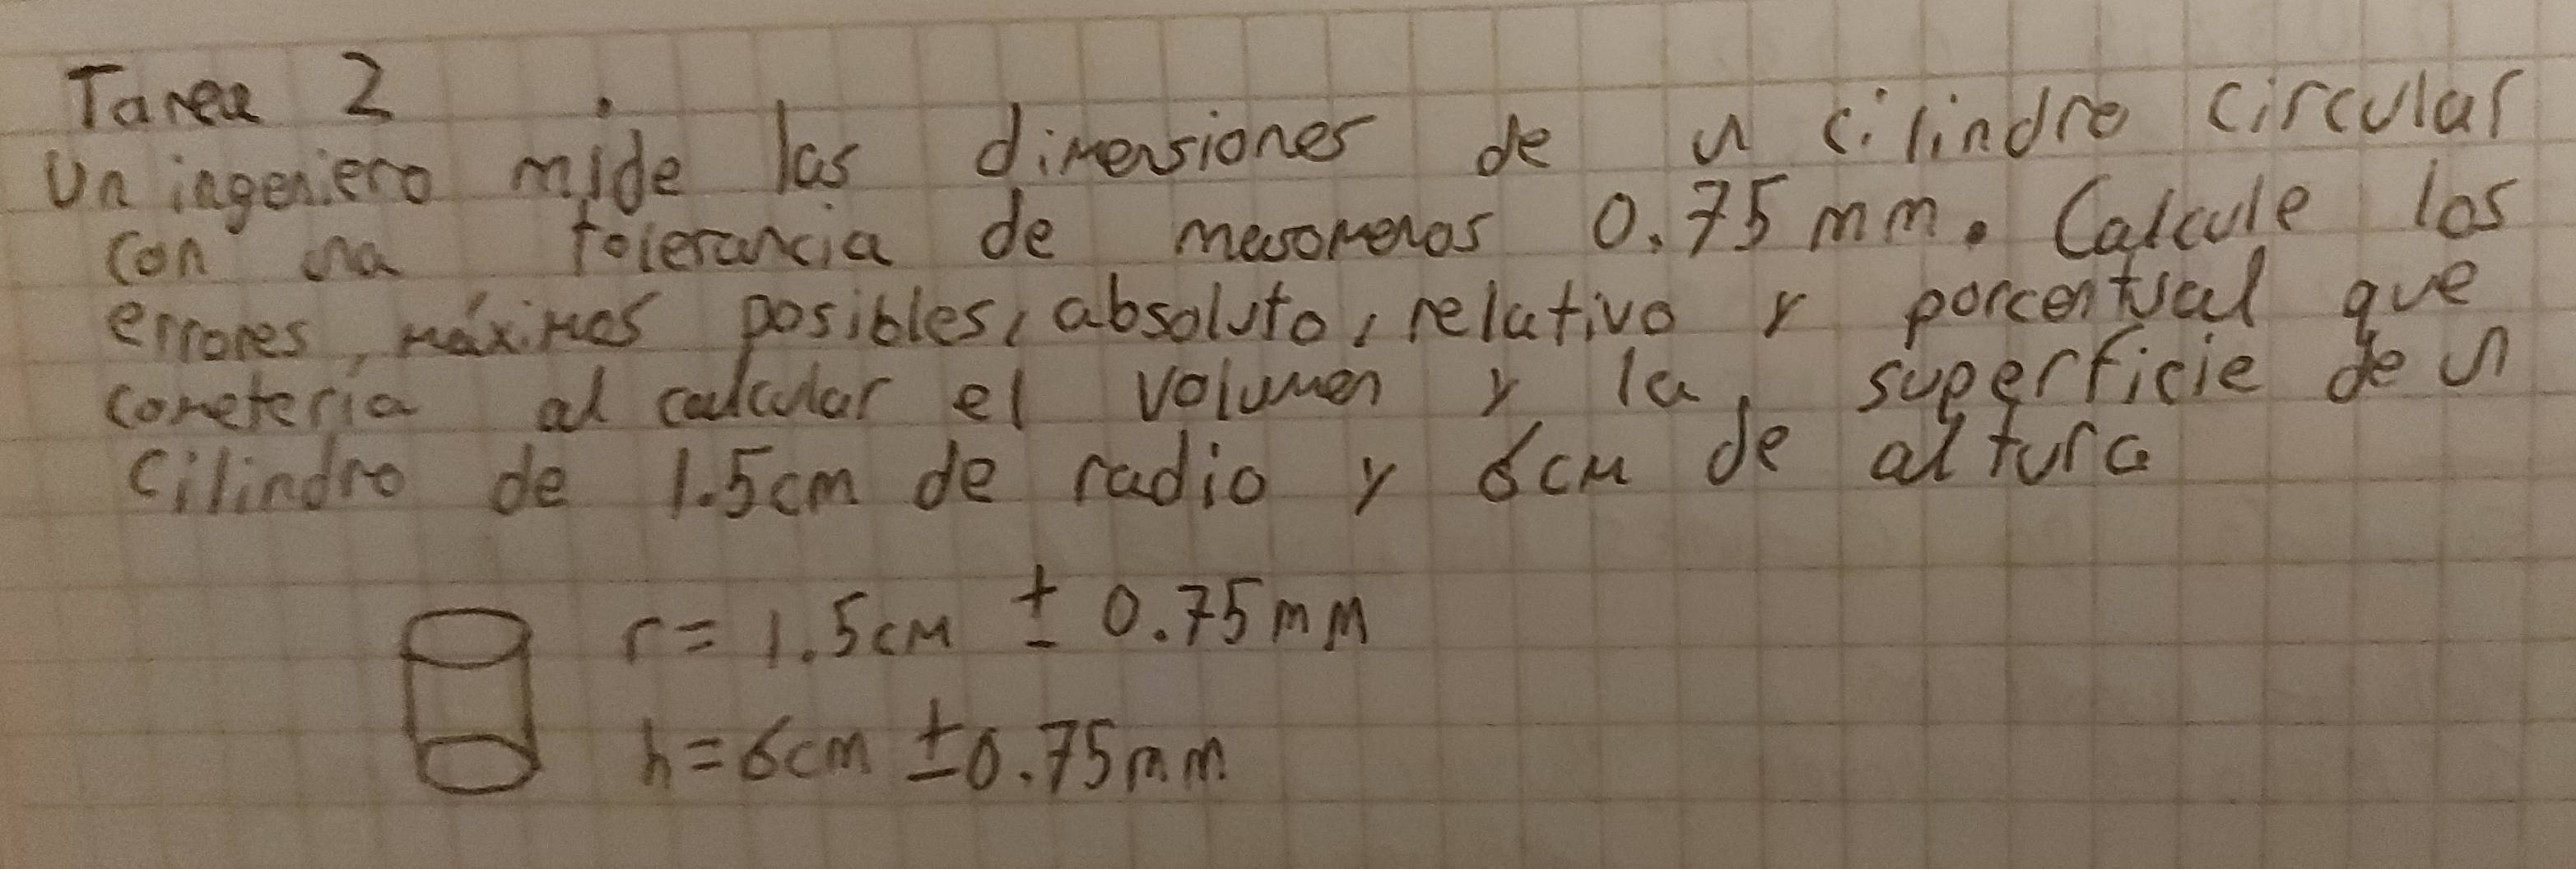 Tarea 2
Un ingeniero mide las dimensiones de un cilindro circular
con una tolerancia de masomenos 0.75 mm. Calcule los
errores, máximos posibles, absoluto, relativo y porcentual que
cometería al calcular el volumen y la superficie de un
Cilindro de 1.5cm de radio y 6cm de altura
r = 1.5cm ± 0.75mm
h = 6cm ± 0.75mm